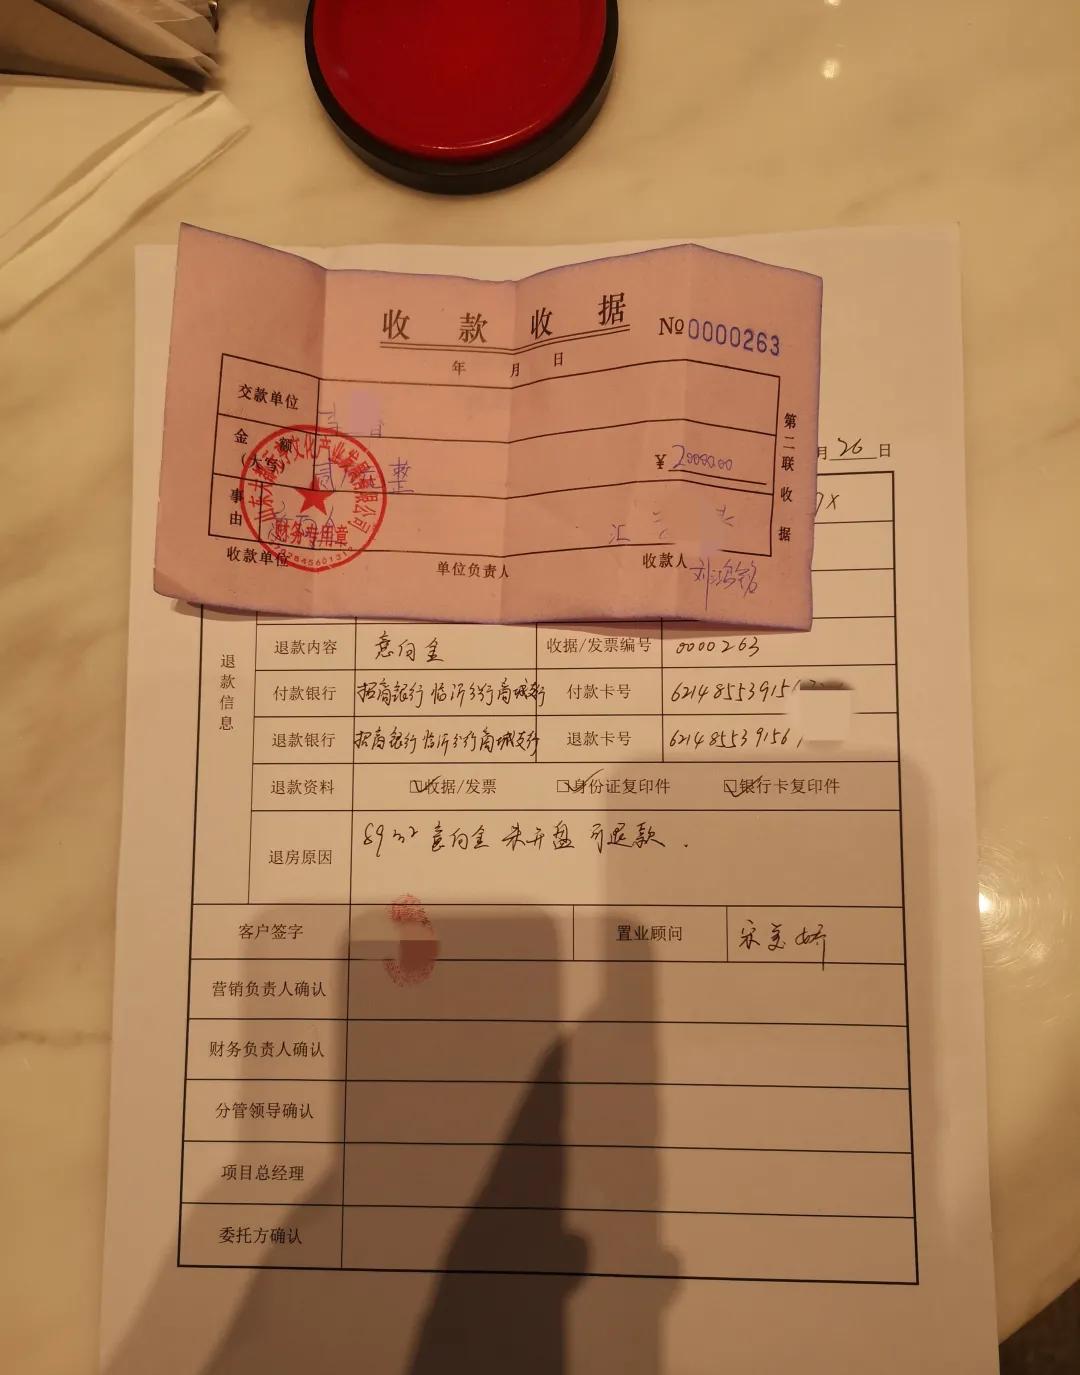 收款收据 №0000263
年 月 日
交款单位
金额
(大写) 贰 整 ¥ 20000.00
事由
收款单位 单位负责人 收款人 刘鸿铭
第二联 收据
财务专用章
月 26 日
退款信息
退款内容 意向金 收据/发票编号 0000263
付款银行 招商银行临沂分行商城支行 付款卡号 62148553915
退款银行 招商银行临沂分行商城支行 退款卡号 621485539156
退款资料 ☑收据/发票 ☑身份证复印件 ☑银行卡复印件
退房原因 89m² 意向金 未开盘 可退款.
客户签字 置业顾问 宋美娇
营销负责人确认
财务负责人确认
分管领导确认
项目总经理
委托方确认